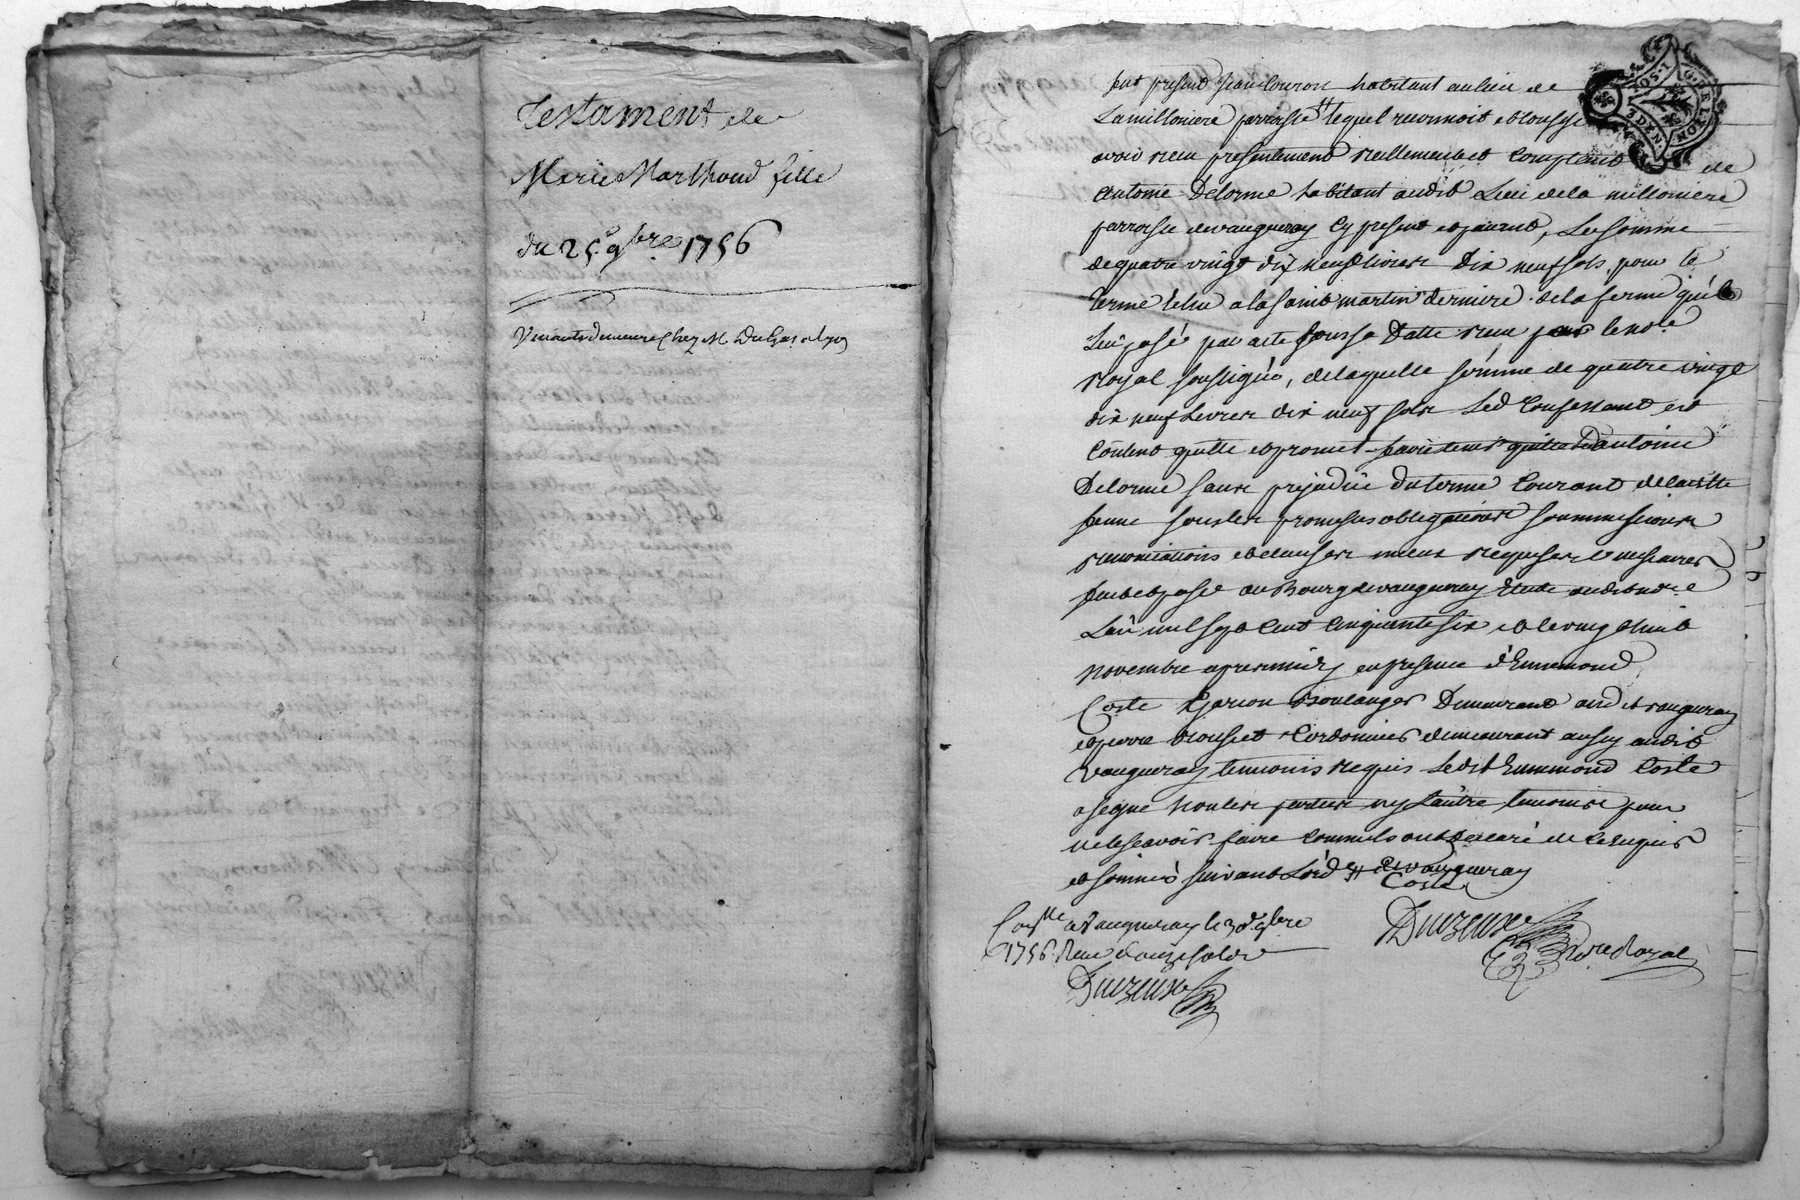 Testament de
Marie Marthoud fille
du 25 9bre 1756
demeure chez M.
fut present Jean Couron habitant au lieu de
La milloniere parroisse # lequel reconnoit et confesse
avoir reçu presentement reellement et comptant de
Antoine Delorme habitant audit Lieu de la milloniere
parroisse de vaugneray cy present et , La somme
de quatre vingt dix neuf livres dix neuf sols pour le
terme echu a la saint martin derniere de la ferme qu'il
Luy a passé par acte sous sa datte reçu par le no.re
Royal soussigné, de laquelle somme de quatre vingt
dix neuf Livres dix neuf sols Led Confessant est
Content quitte et promet faire tenir quitte led antoine
Delorme sans prejudice du terme Courant de laditte
ferme sous les promesses obligations soummissions
renonciations et clauses mieux requises et necessaires
fait et passé au Bourg de vaugneray Etude dud no.re
L'an mil sept cent cinquante six et le vingt huit
novembre apres midy en presence d'Ennemond
Coste Garçon Boulanger Demeurant aud it vaugneray
et pierre Cordonnier demeurant aussy audit
vaugneray temoins requis Ledit Ennemond Coste
a signé non les parties ny L'autre temoin pour
ne le sçavoir faire comme ils ont declaré de ce enquis
et sommés suivant L'ord # de vaugneray
Coste
Con.lle a vaugneray le 3 xbre
1756 Reçu douze sols
DUUZEUXE
DUUZEUXE
No.re Royal
3 DEN